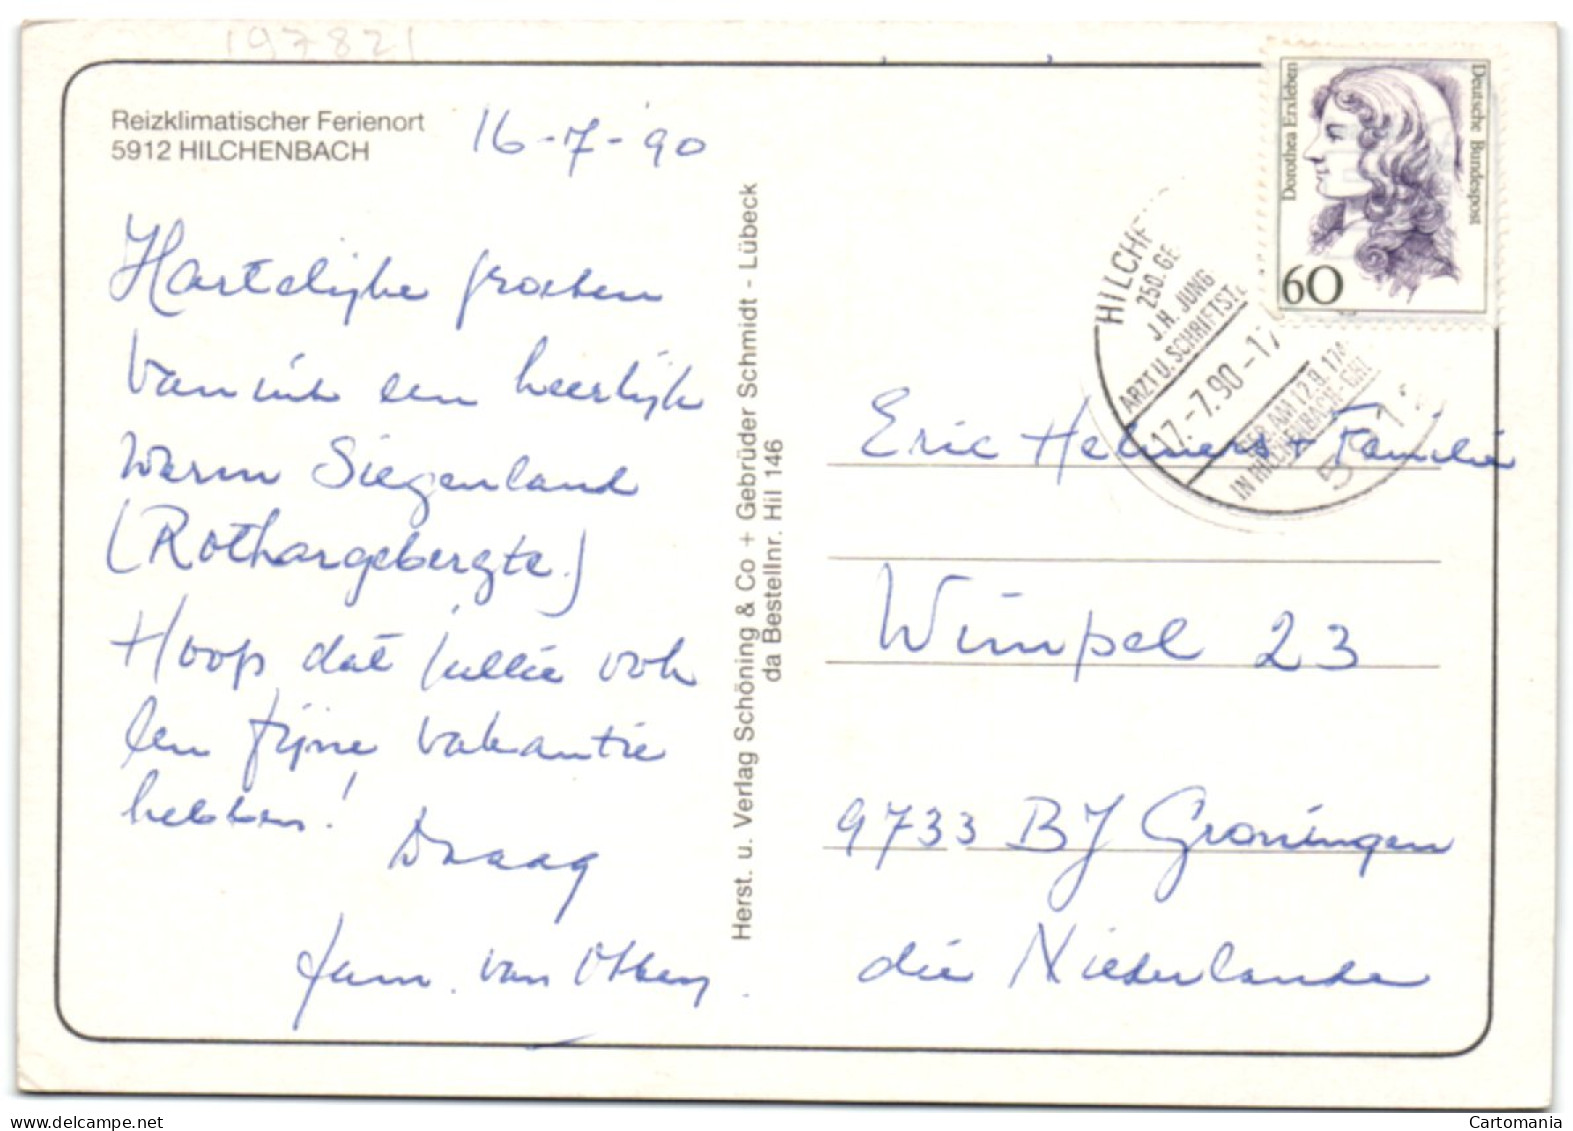 197821
Reizklimatischer Ferienort
5912 HILCHENBACH
16-7-'90
Hartelijke groeten
vanuit een heerlijk
warm Siegenland
(Rothargebergte.)
Hoop dat jullie ook
een fijne vakantie
hebben!
Daaag
fam. van
Herst. u. Verlag Schöning & Co + Gebrüder Schmidt - Lübeck
da Bestellnr. Hil 146
Deutsche Bundespost
Dorothea Erxleben
60
HILCHE
250. GE
J.H. JUNG
ARZT U. SCHRIFTST.
17.-7.90-17
AM 12.9.174
IN HILCHENBACH-
Eric Helmers + Familie
Wimpel 23
9733 BJ Groningen
die Niederlande
Cartomania